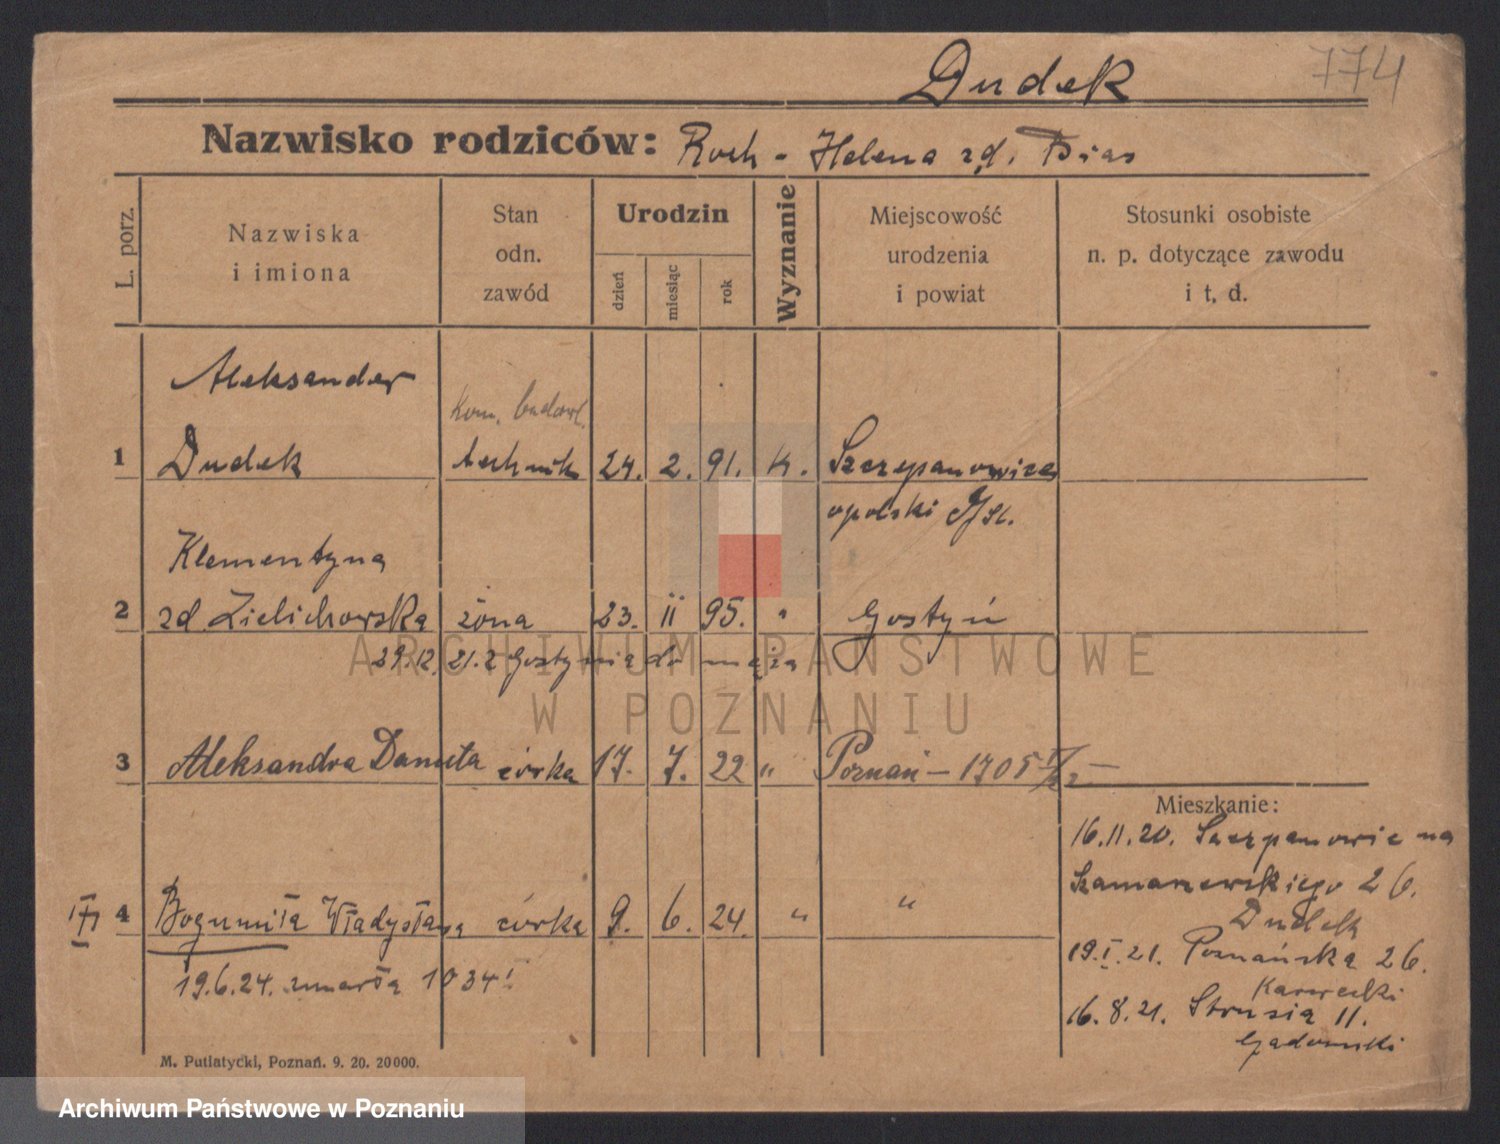 Dudek
774
Nazwisko rodziców: Roch - Helena zd. Pias
L. porz.
Nazwiska
i imiona
Stan
odn.
zawód
Urodzin
dzień
miesiąc
rok
Wyznanie
Miejscowość
urodzenia
i powiat
Stosunki osobiste
n. p. dotyczące zawodu
i t. d.
Aleksander
kom. budowl.
1 Dudek technik 24. 2. 91. k. Szczepanowice
opolski G/Sl.
Klementyna
2 zd Zielichowska żona 23. II 95. " Gostyń
29.12.21. z Gostynia do męża
3 Aleksandra Danuta córka 17. 7. 22 " Poznań – 1705
Mieszkanie:
16.11.20. Szczepanowic na
Szamarzewskiego 26.
Dudek
4 Bogumiła Władysława córka 9. 6. 24. " "
19.I.21. Poznańska 26.
19.6.24. zmarła 1034 I
Karwecki
16.8.21. Strusia 11.
Gadomski
M. Putiatycki, Poznań. 9. 20. 20000.
ARCHIWUM PAŃSTWOWE
W POZNANIU
Archiwum Państwowe w Poznaniu